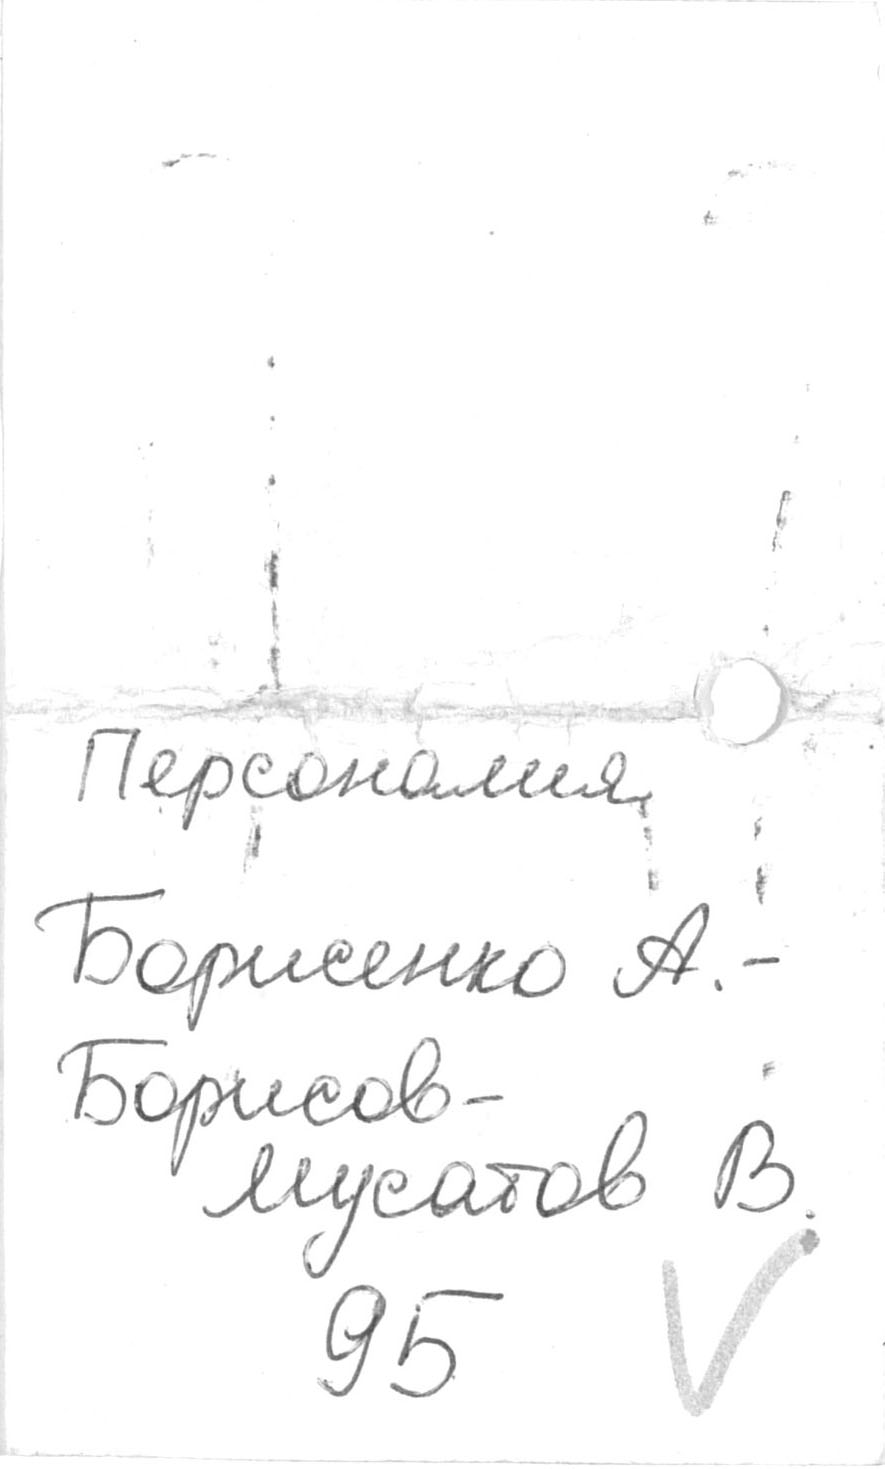 Персоналия
Борисенко А.-
Борисов-
мусатов В.
95